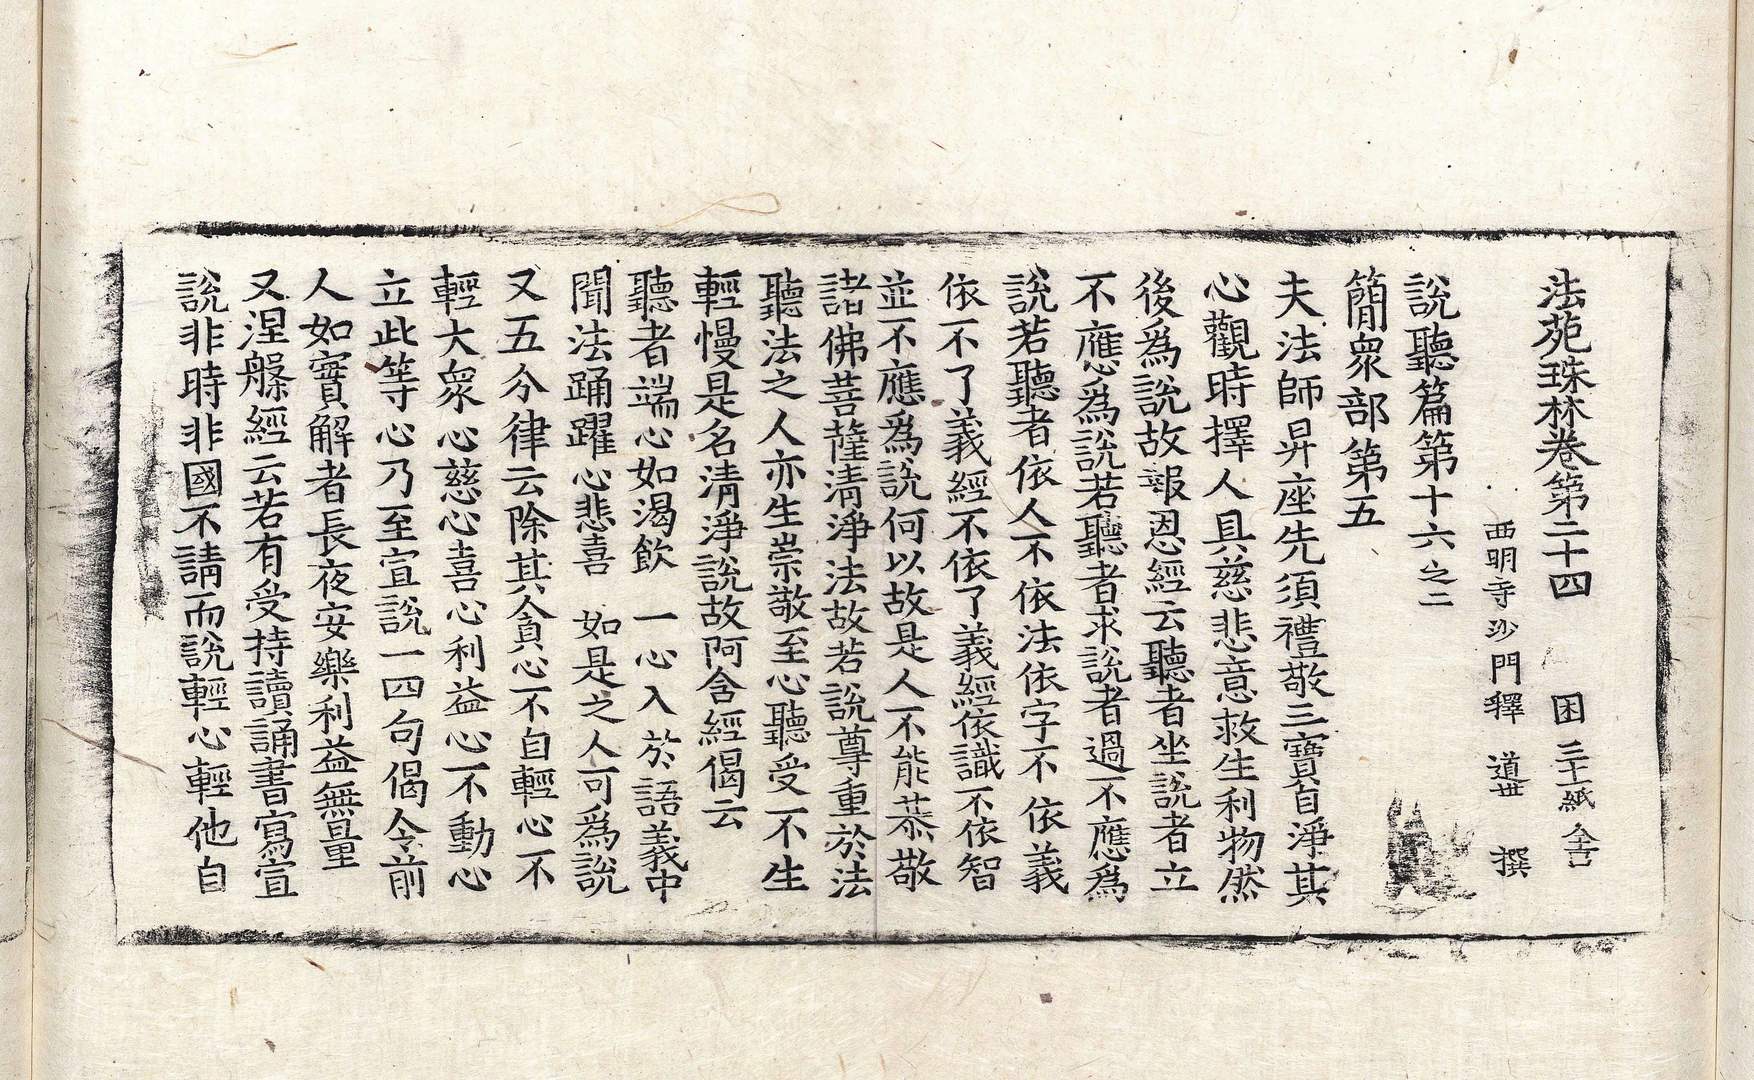 法苑珠林卷第二十四　困　三十一紙　全言
西明寺沙門釋　道世　撰
說聽篇第十六之二
簡衆部第五
夫法師昇座先須禮敬三寶自淨其
心觀時擇人具慈悲意救生利物然
後爲說故報恩經云聽者坐說者立
不應爲說若聽者求說者過不應爲
說若聽者依人不依法依字不依義
依不了義經不依了義經依識不依智
並不應爲說何以故是人不能恭敬
諸佛菩薩清淨法故若說尊重於法
聽法之人亦生崇敬至心聽受不生
輕慢是名清淨說故阿含經偈云
聽者端心如渴飲　一心入於語義中
聞法踊躍心悲喜　如是之人可爲說
又五分律云除其貪心不自輕心不
輕大衆心慈心喜心利益心不動心
立此等心乃至宣說一四句偈令前
人如實解者長夜安樂利益無量
又涅槃經云若有受持讀誦書寫宣
說非時非國不請而說輕心輕他自